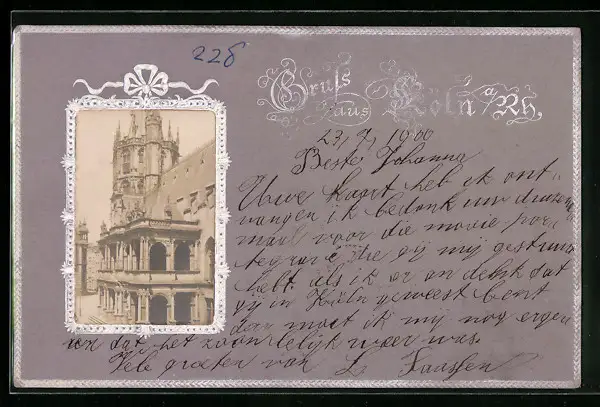 228
Gruss aus Köln a/Rh.
23/7 1900
Beste Johanna
Uwe kaart heb ik ont-
vangen ik bedank um duizen
maal voor die mooie por
die gij mij gestuur
hebt als ik er an denk dat
gij in Kieln geweest bent
dan moet ik mij nog erger
dat het zoon lelijk weer was.
Vele groeten van L. Faassen